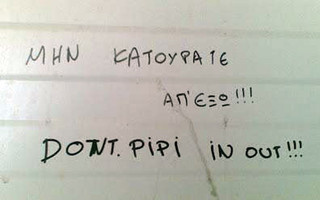 ΜΗΝ ΚΑΤΟΥΡΑΤΕ
ΑΠ'ΕΞΩ!!!
DONT. PiPi iN OUT!!!